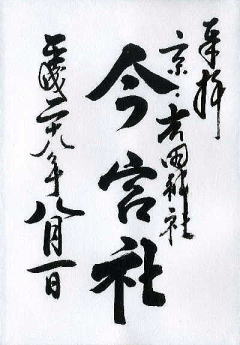 奉拝
京・吉田神社
今宮社
平成二十九年八月一日